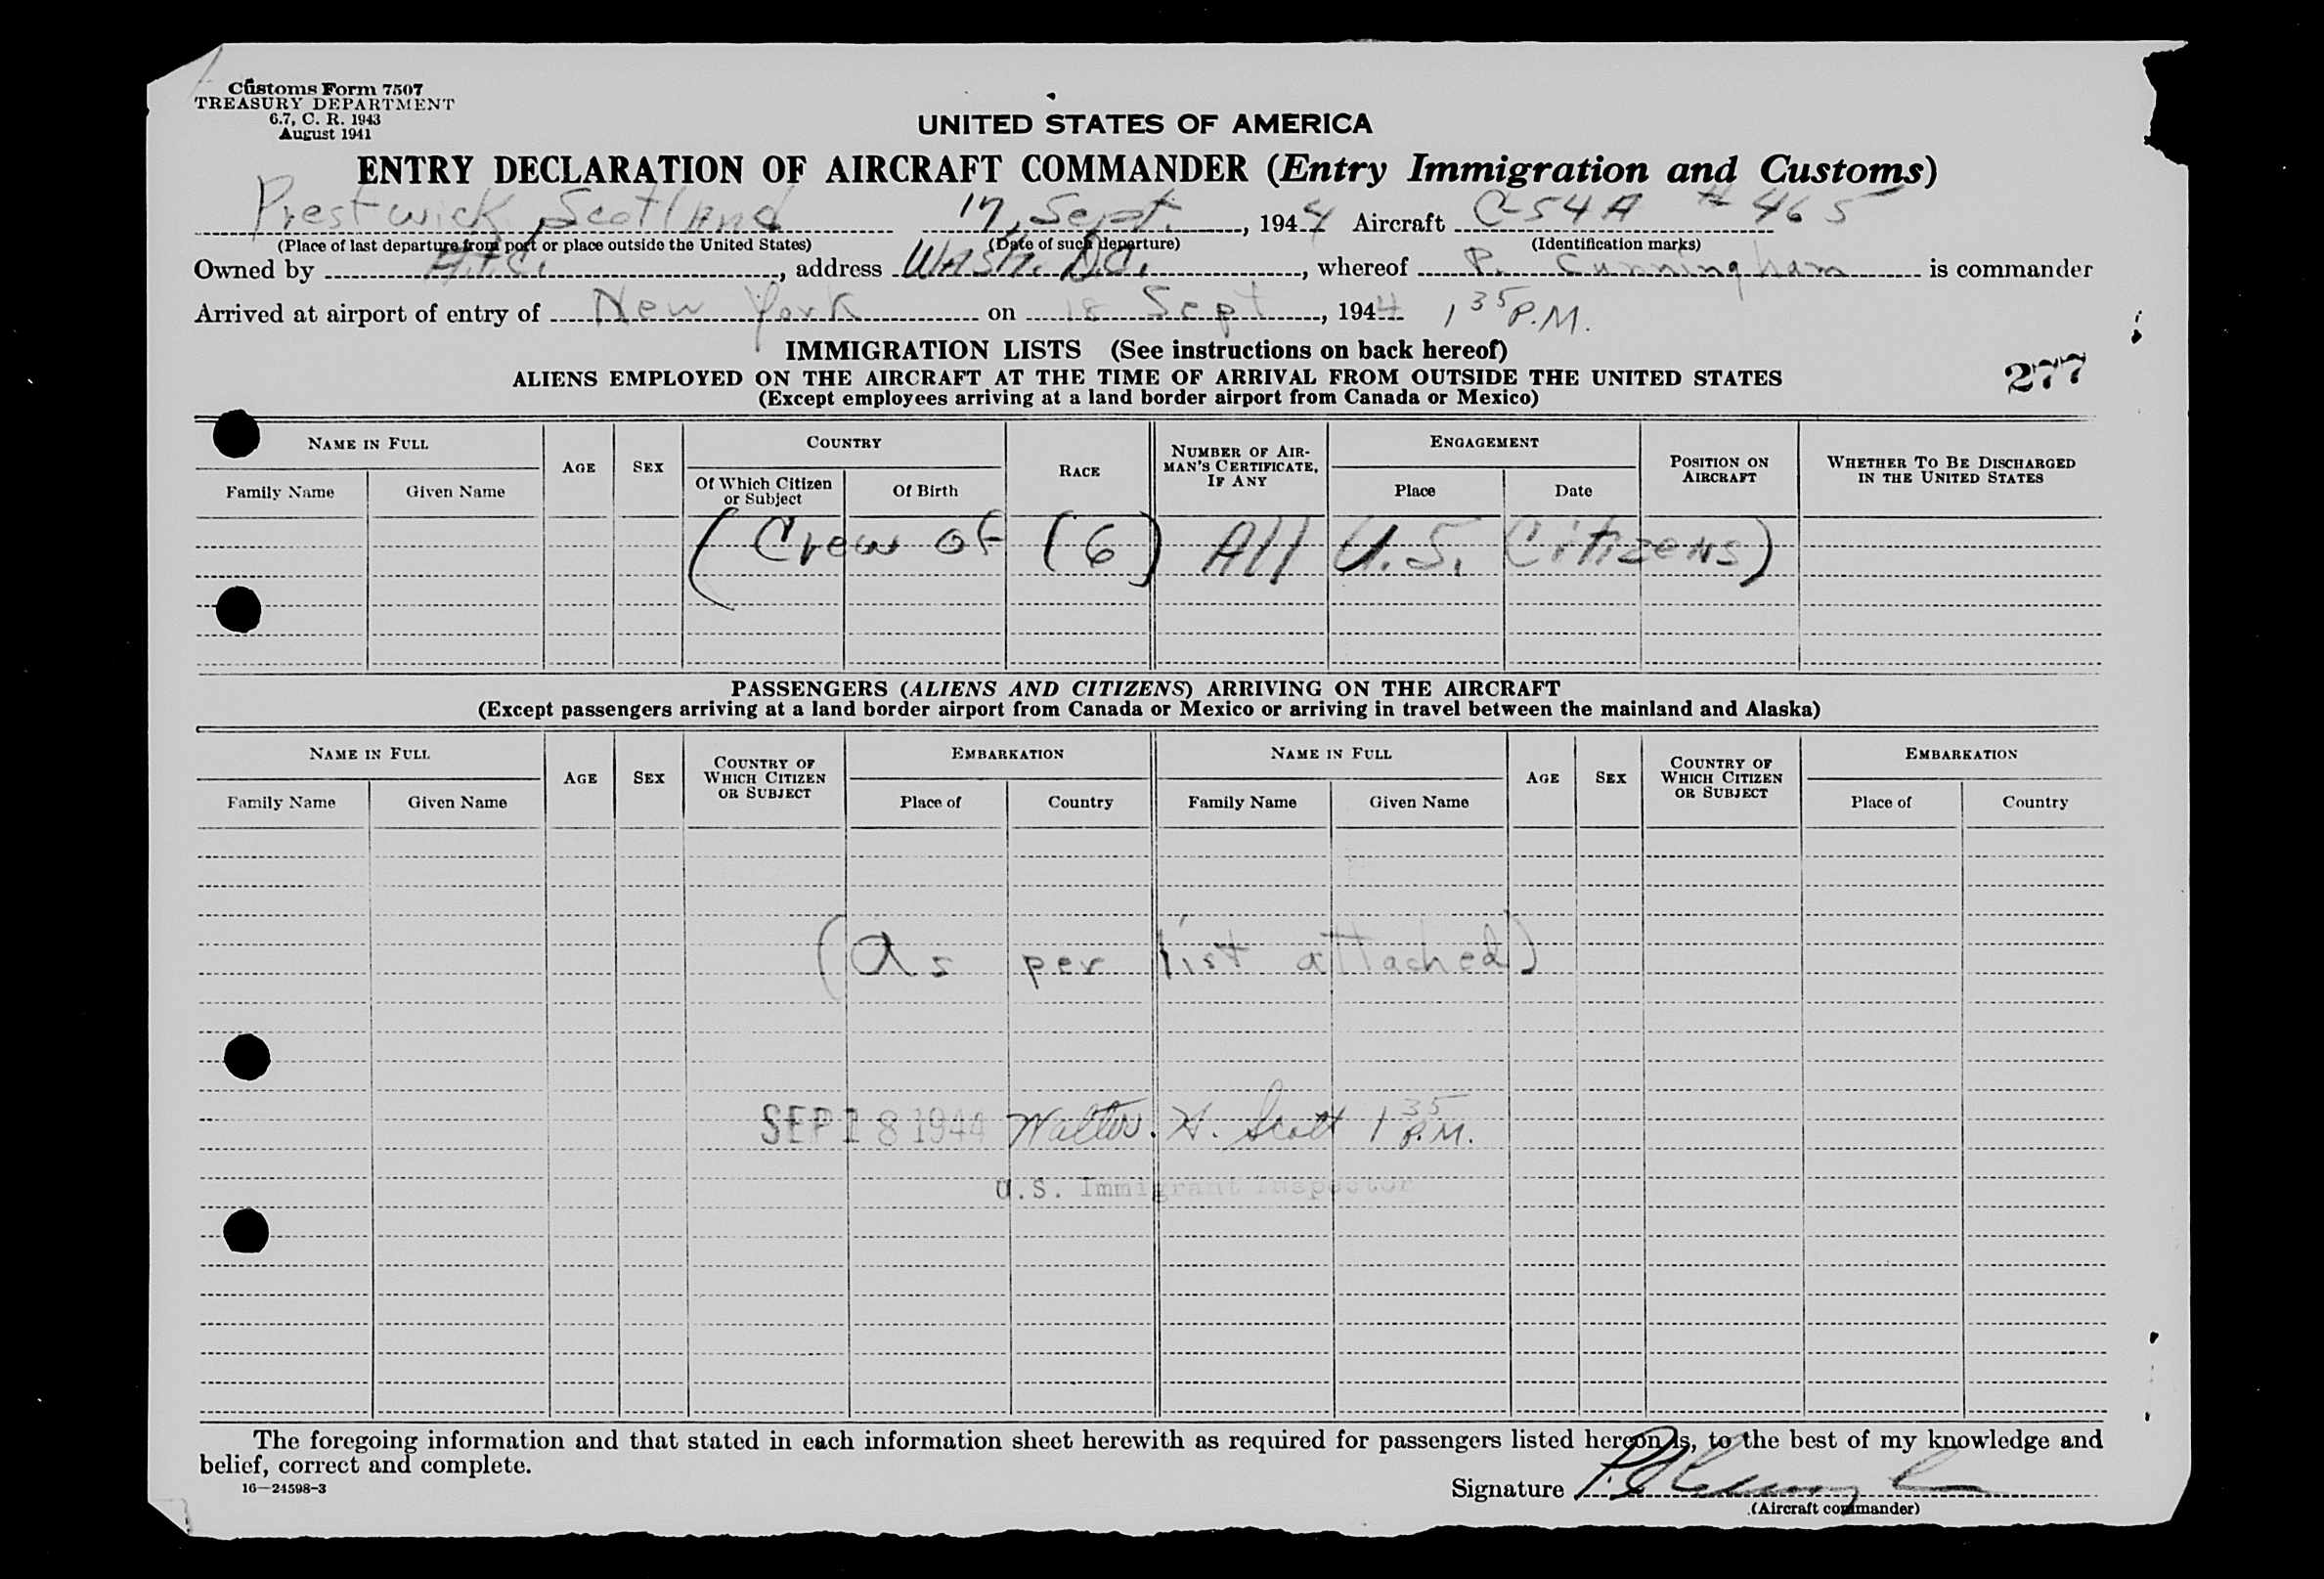 Customs Form 7507
TREASURY DEPARTMENT
6.7, C. R. 1943
August 1941
UNITED STATES OF AMERICA
ENTRY DECLARATION OF AIRCRAFT COMMANDER (Entry Immigration and Customs)
Prestwick Scotland 17, Sept., 1944 Aircraft C-54A # 465
(Place of last departure from port or place outside the United States) (Date of such departure) (Identification marks)
Owned by A.T.C., address Wash. D.C., whereof P. Cunningham is commander
Arrived at airport of entry of New York on 18 Sept, 1944 1 35 P.M.
IMMIGRATION LISTS (See instructions on back hereof)
277
ALIENS EMPLOYED ON THE AIRCRAFT AT THE TIME OF ARRIVAL FROM OUTSIDE THE UNITED STATES
(Except employees arriving at a land border airport from Canada or Mexico)
NAME IN FULL AGE SEX COUNTRY RACE NUMBER OF AIRMAN'S CERTIFICATE, IF ANY ENGAGEMENT POSITION ON AIRCRAFT WHETHER TO BE DISCHARGED IN THE UNITED STATES
Family Name Given Name Of Which Citizen or Subject Of Birth Place Date
(Crew of (6) All U.S. Citizens)
PASSENGERS (ALIENS AND CITIZENS) ARRIVING ON THE AIRCRAFT
(Except passengers arriving at a land border airport from Canada or Mexico or arriving in travel between the mainland and Alaska)
NAME IN FULL AGE SEX COUNTRY OF WHICH CITIZEN OR SUBJECT EMBARKATION NAME IN FULL AGE SEX COUNTRY OF WHICH CITIZEN OR SUBJECT EMBARKATION
Family Name Given Name Place of Country Family Name Given Name Place of Country
(As per list attached)
SEP 18 1944 Walter. H. Scott 1 35 P.M.
U.S. Immigrant Inspector
The foregoing information and that stated in each information sheet herewith as required for passengers listed hereon is, to the best of my knowledge and
belief, correct and complete.
16—24598-3
Signature
(Aircraft commander)